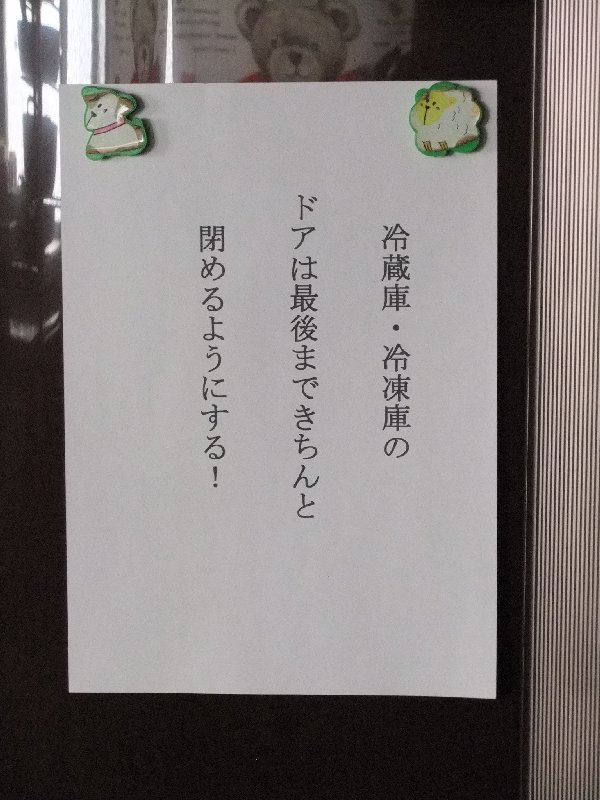 冷蔵庫・冷凍庫の
ドアは最後まできちんと
閉めるようにする!